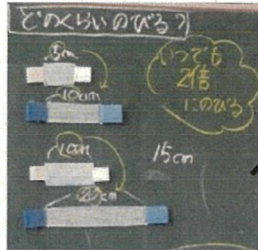 どのくらいのびる?
5cm
10cm
いつでも
2倍
にのびる
10cm
20cm
15cm